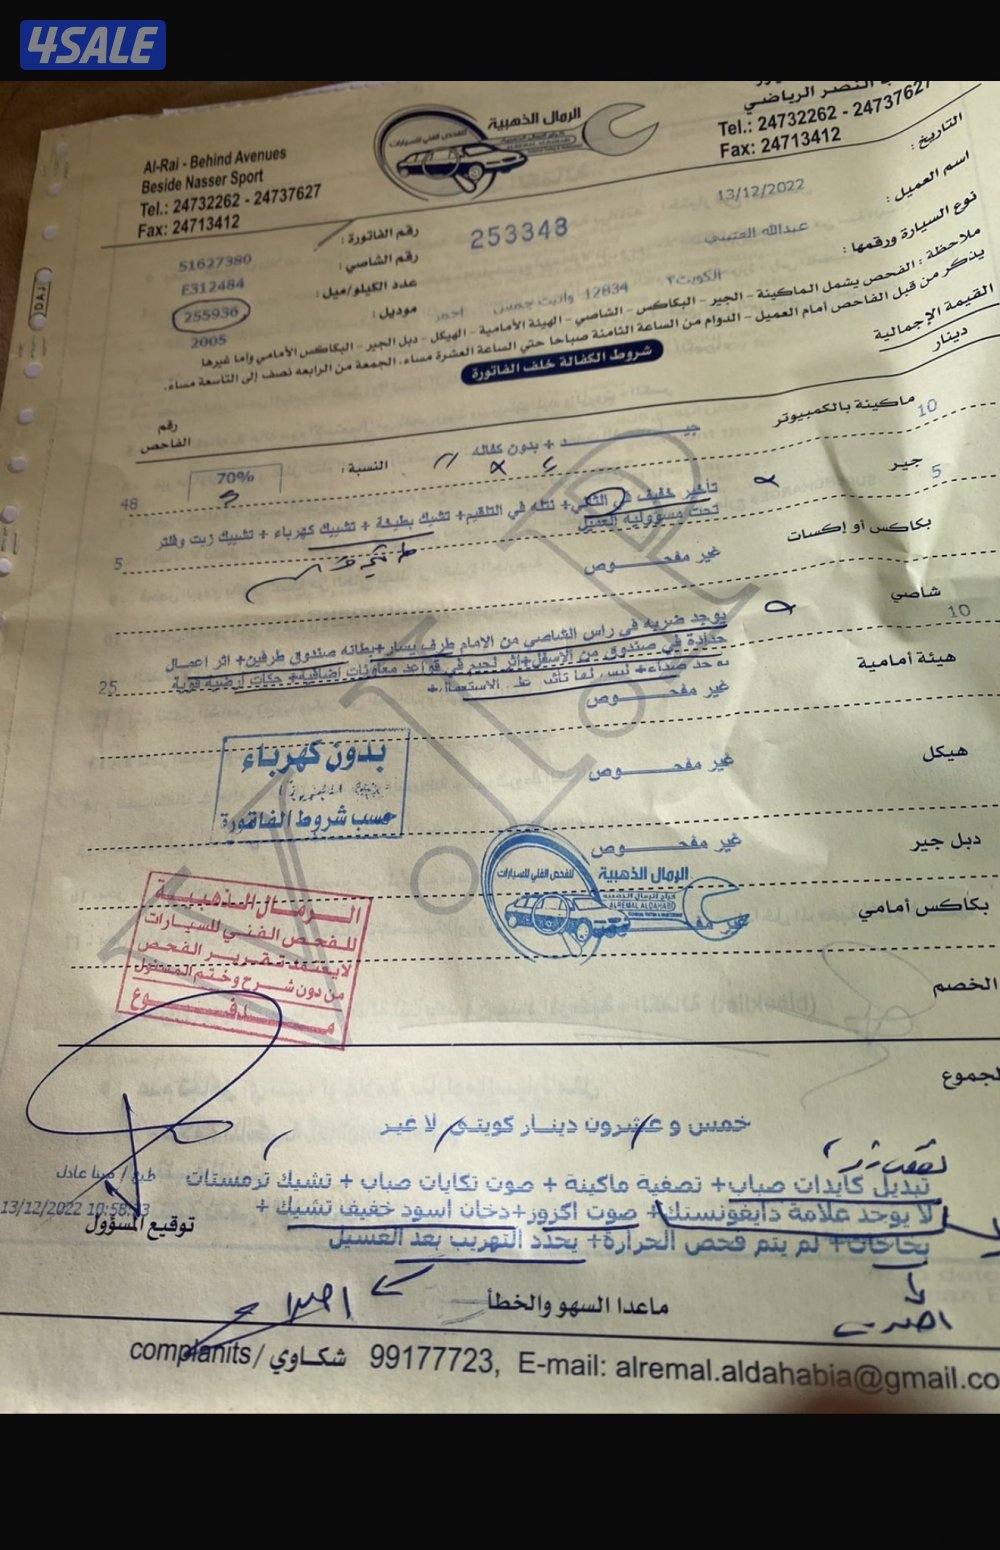 4SALE
Al-Rai - Behind Avenues
Beside Nasser Sport
Tel.: 24732262 - 24737627
Fax: 24713412
الرمال الذهبية
للفحص الفني للسيارات
النصر الرياضي
Tel.: 24732262 - 24737627
Fax: 24713412
التاريخ :
13/12/2022
رقم الفاتورة :
253348
اسم العميل :
عبدالله العتيبي
رقم الشاصي :
51627380
نوع السيارة ورقمها :
الكويت٢ 12834 وانيت جمس احمر
عدد الكيلو/ميل :
E312484
موديل :
255936
2005
ملاحظة : الفحص يشمل الماكينة - الجير - البكاكس - الشاصي - الهيئة الأمامية - الهيكل - دبل الجير - البكاكس الأمامي وإما غيرها
يذكر من قبل الفاحص أمام العميل - الدوام من الساعة الثامنة صباحا حتي الساعة العشرة مساء. الجمعة من الرابعه نصف إلى التاسعة مساء.
شروط الكفالة خلف الفاتورة
القيمة الإجمالية
دينار
رقم الفاحص
ماكينة بالكمبيوتر
10
جيد + بدون كفاله
النسبة :
70%
48
جير
5
تأخير خفيف في الثاني+ نتله في التلقيم+ تشيك بطيخة + تشييك كهرباء + تشييك زيت وفلتر
تحت مسؤولية العميل
5
بكاكس أو إكسات
غير مفحوص
شاصي
10
يوجد ضربه في راس الشاصي من الامام طرف يسار+بطانه صندوق طرفين+ اثر اعمال
حدادة في صندوق من الاسفل+اثر لحيم في قواعد معاونات اضافيه+ حكات ارضيه قوية
25
يوجد صداء+ ليس لها تأثير على الاستعمال+
هيئة أمامية
غير مفحوص
هيكل
غير مفحوص
بدون كهرباء
حسب شروط الفاتورة
دبل جير
غير مفحوص
الرمال الذهبية
للفحص الفني للسيارات
كراج الرمال الذهبية
ALREMAL ALDAHABI
بكاكس أمامي
غير
الرمال الذهبية
للفحص الفني للسيارات
لا يعتمد تقرير الفحص
من دون شرح وختم المسئول
مدفوع
الخصم
لجموع
خمس و عشرون دينار كويتي لا غير
تبديل كايدات صباب+ تصفية ماكينة + صوت تكايات صباب + تشيك ترمستات
لا يوجد علامة دايغونستك+ صوت اكزوز+دخان اسود خفيف تشيك +
بخاخات+ لم يتم فحص الحرارة+ يحدد التهريب بعد الغسيل
طبع / مينا عادل
13/12/2022 10:58:33
توقيع المسؤول
ماعدا السهو والخطأ
complanits / شكاوي 99177723, E-mail: alremal.aldahabia@gmail.co